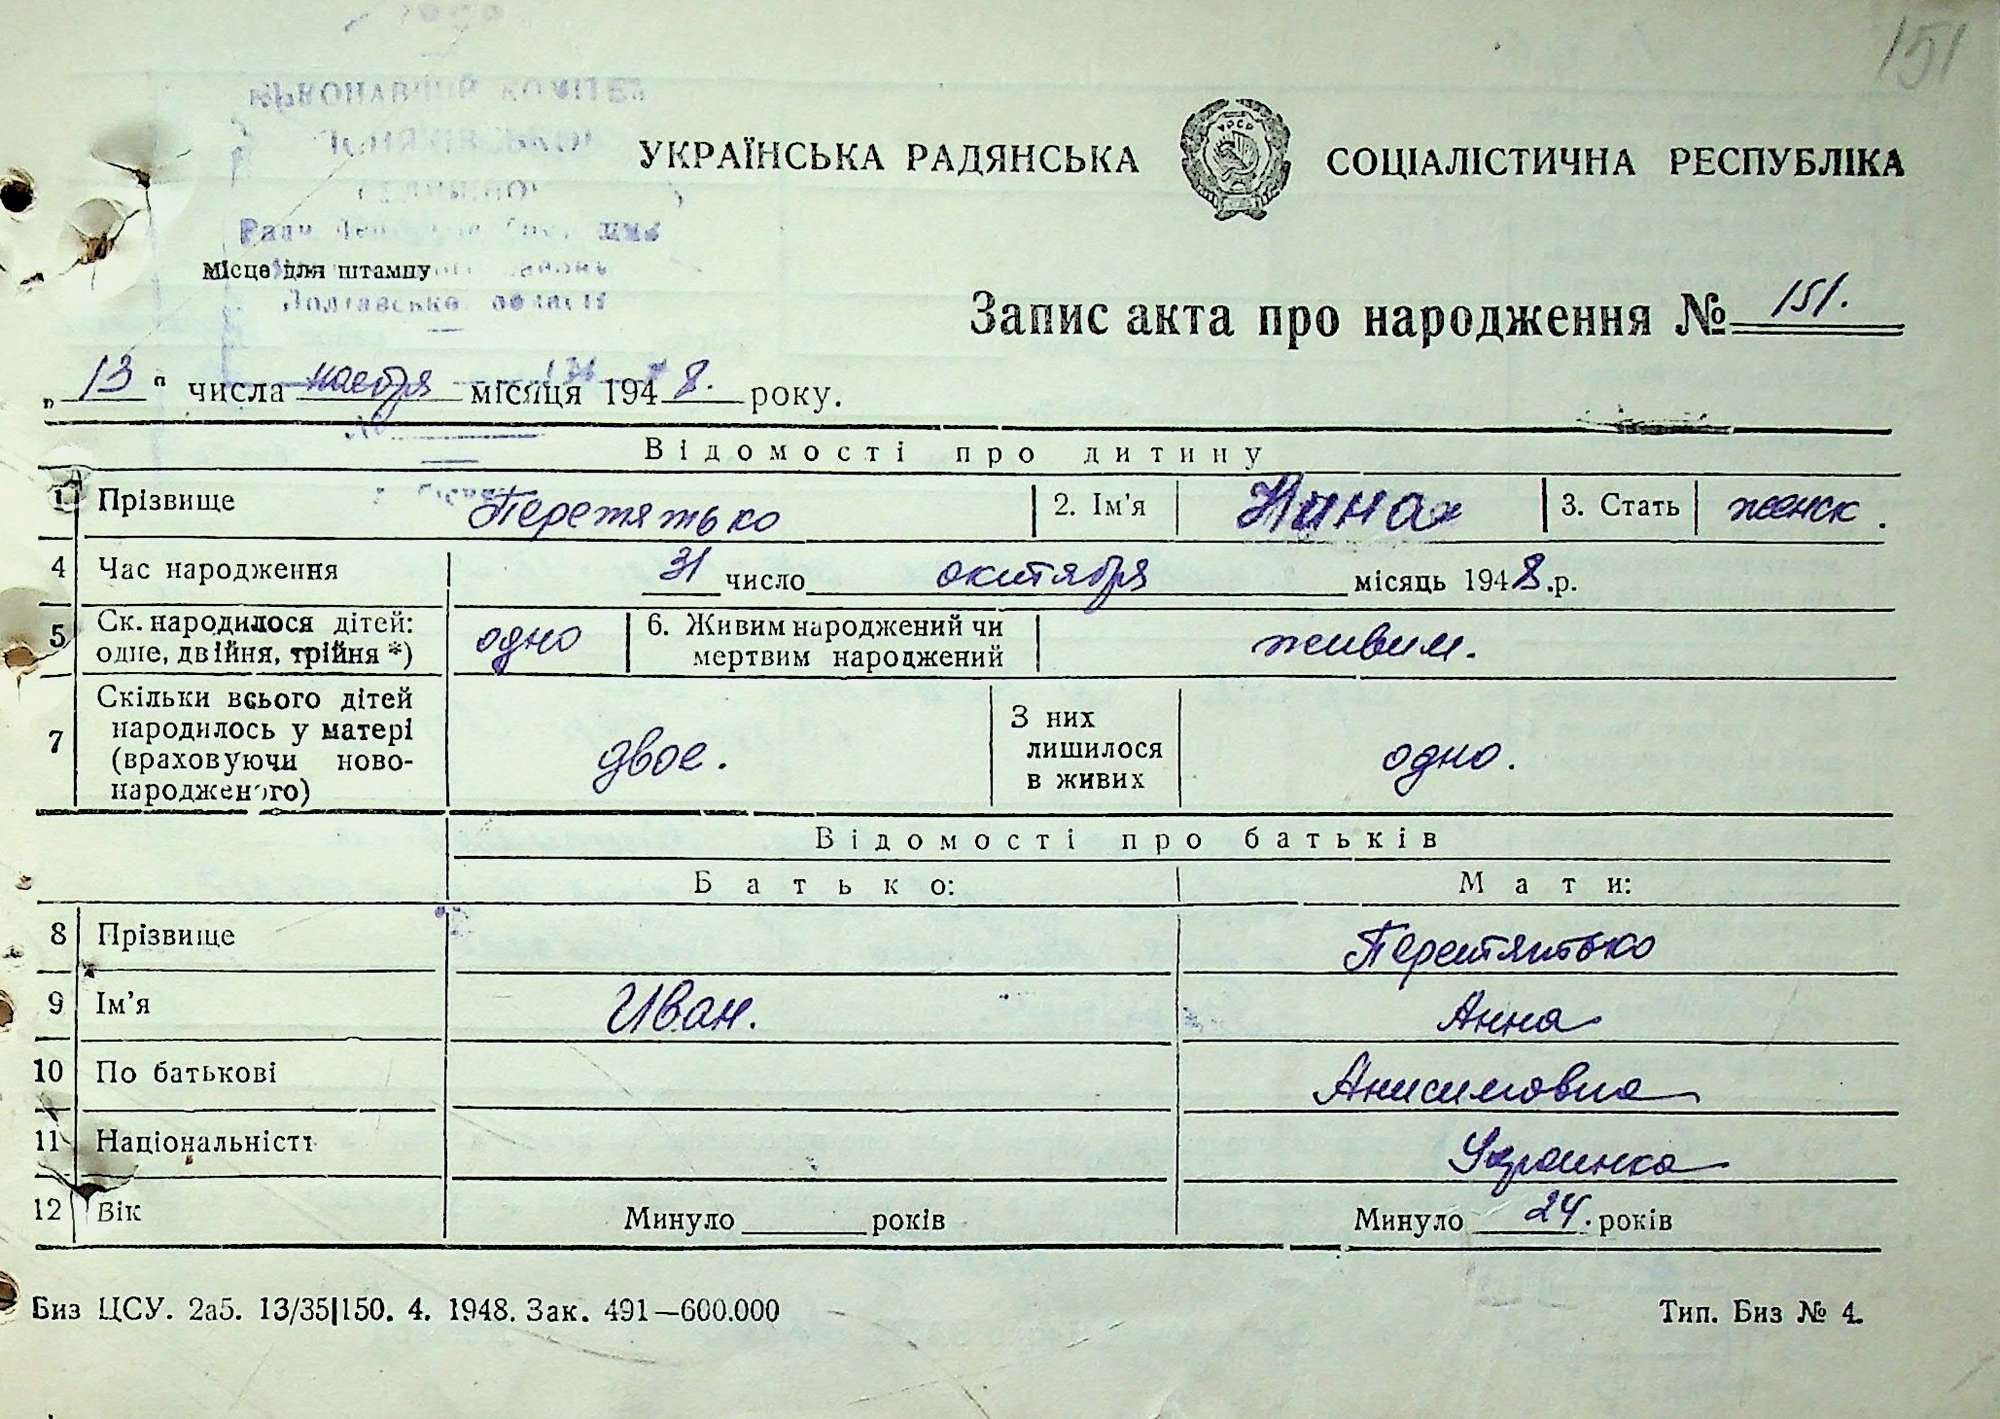 151
ВИКОНАВЧИЙ КОМІТЕТ
УКРАЇНСЬКА РАДЯНСЬКА СОЦІАЛІСТИЧНА РЕСПУБЛІКА
УРСР
Ради
Місце для штампу
Полтавської області
Запис акта про народження № 151.
„ 13 " числа ноября місяця 1948. року.
№
Відомості про дитину
1 Прізвище Перетятько 2. Ім'я Нина 3. Стать женск.
4 Час народження 31 число октября місяць 1948.р.
5 Ск. народилося дітей: одно 6. Живим народжений чи живим.
одне, двійня, трійня *) мертвим народжений
7 Скільки всього дітей
народилось у матері
(враховуючи ново-
народженого) двое.
З них
лишилося
в живих одно.
Відомості про батьків
Батько: Мати:
8 Прізвище Перетятько
9 Ім'я Иван. Анна
10 По батькові Анисимовна
11 Національність Украинка
12 Вік Минуло років Минуло 24. років
Биз ЦСУ. 2а5. 13/35|150. 4. 1948. Зак. 491—600.000 Тип. Биз № 4.